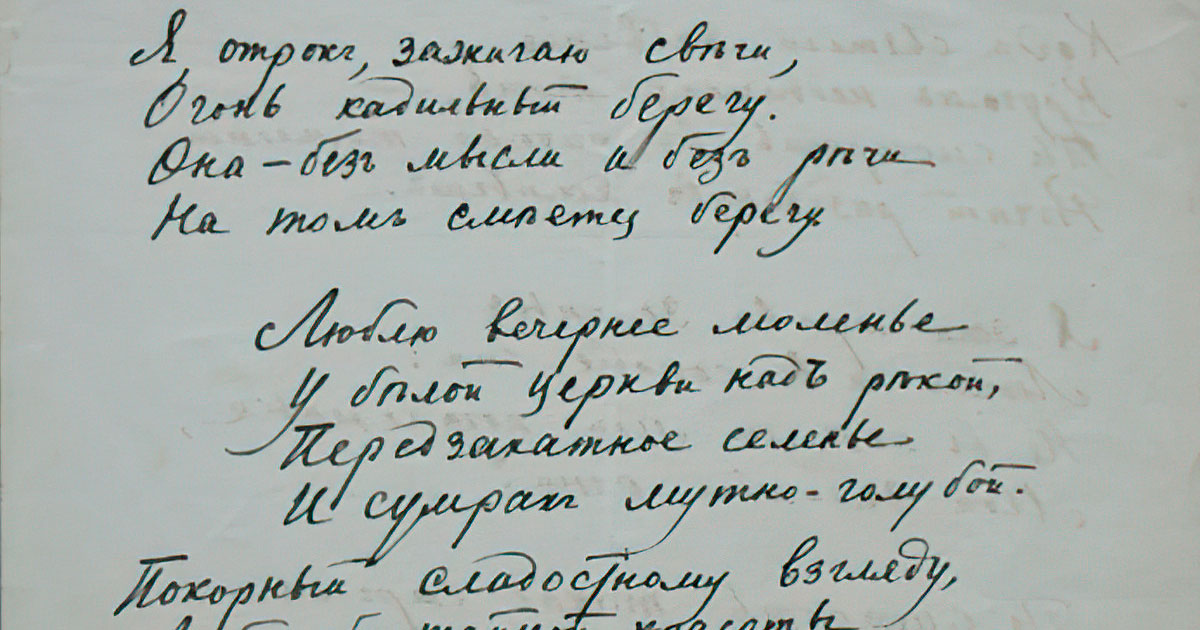 Я, отрокъ, зажигаю свѣчи,
Огонь кадильный берегу.
Она – безъ мысли и безъ рѣчи
На томъ смѣется берегу.
Люблю вечернее моленье
У бѣлой церкви надъ рѣкой,
Передзакатное селенье
И сумракъ мутно-голубой.
Покорный сладостному взгляду,